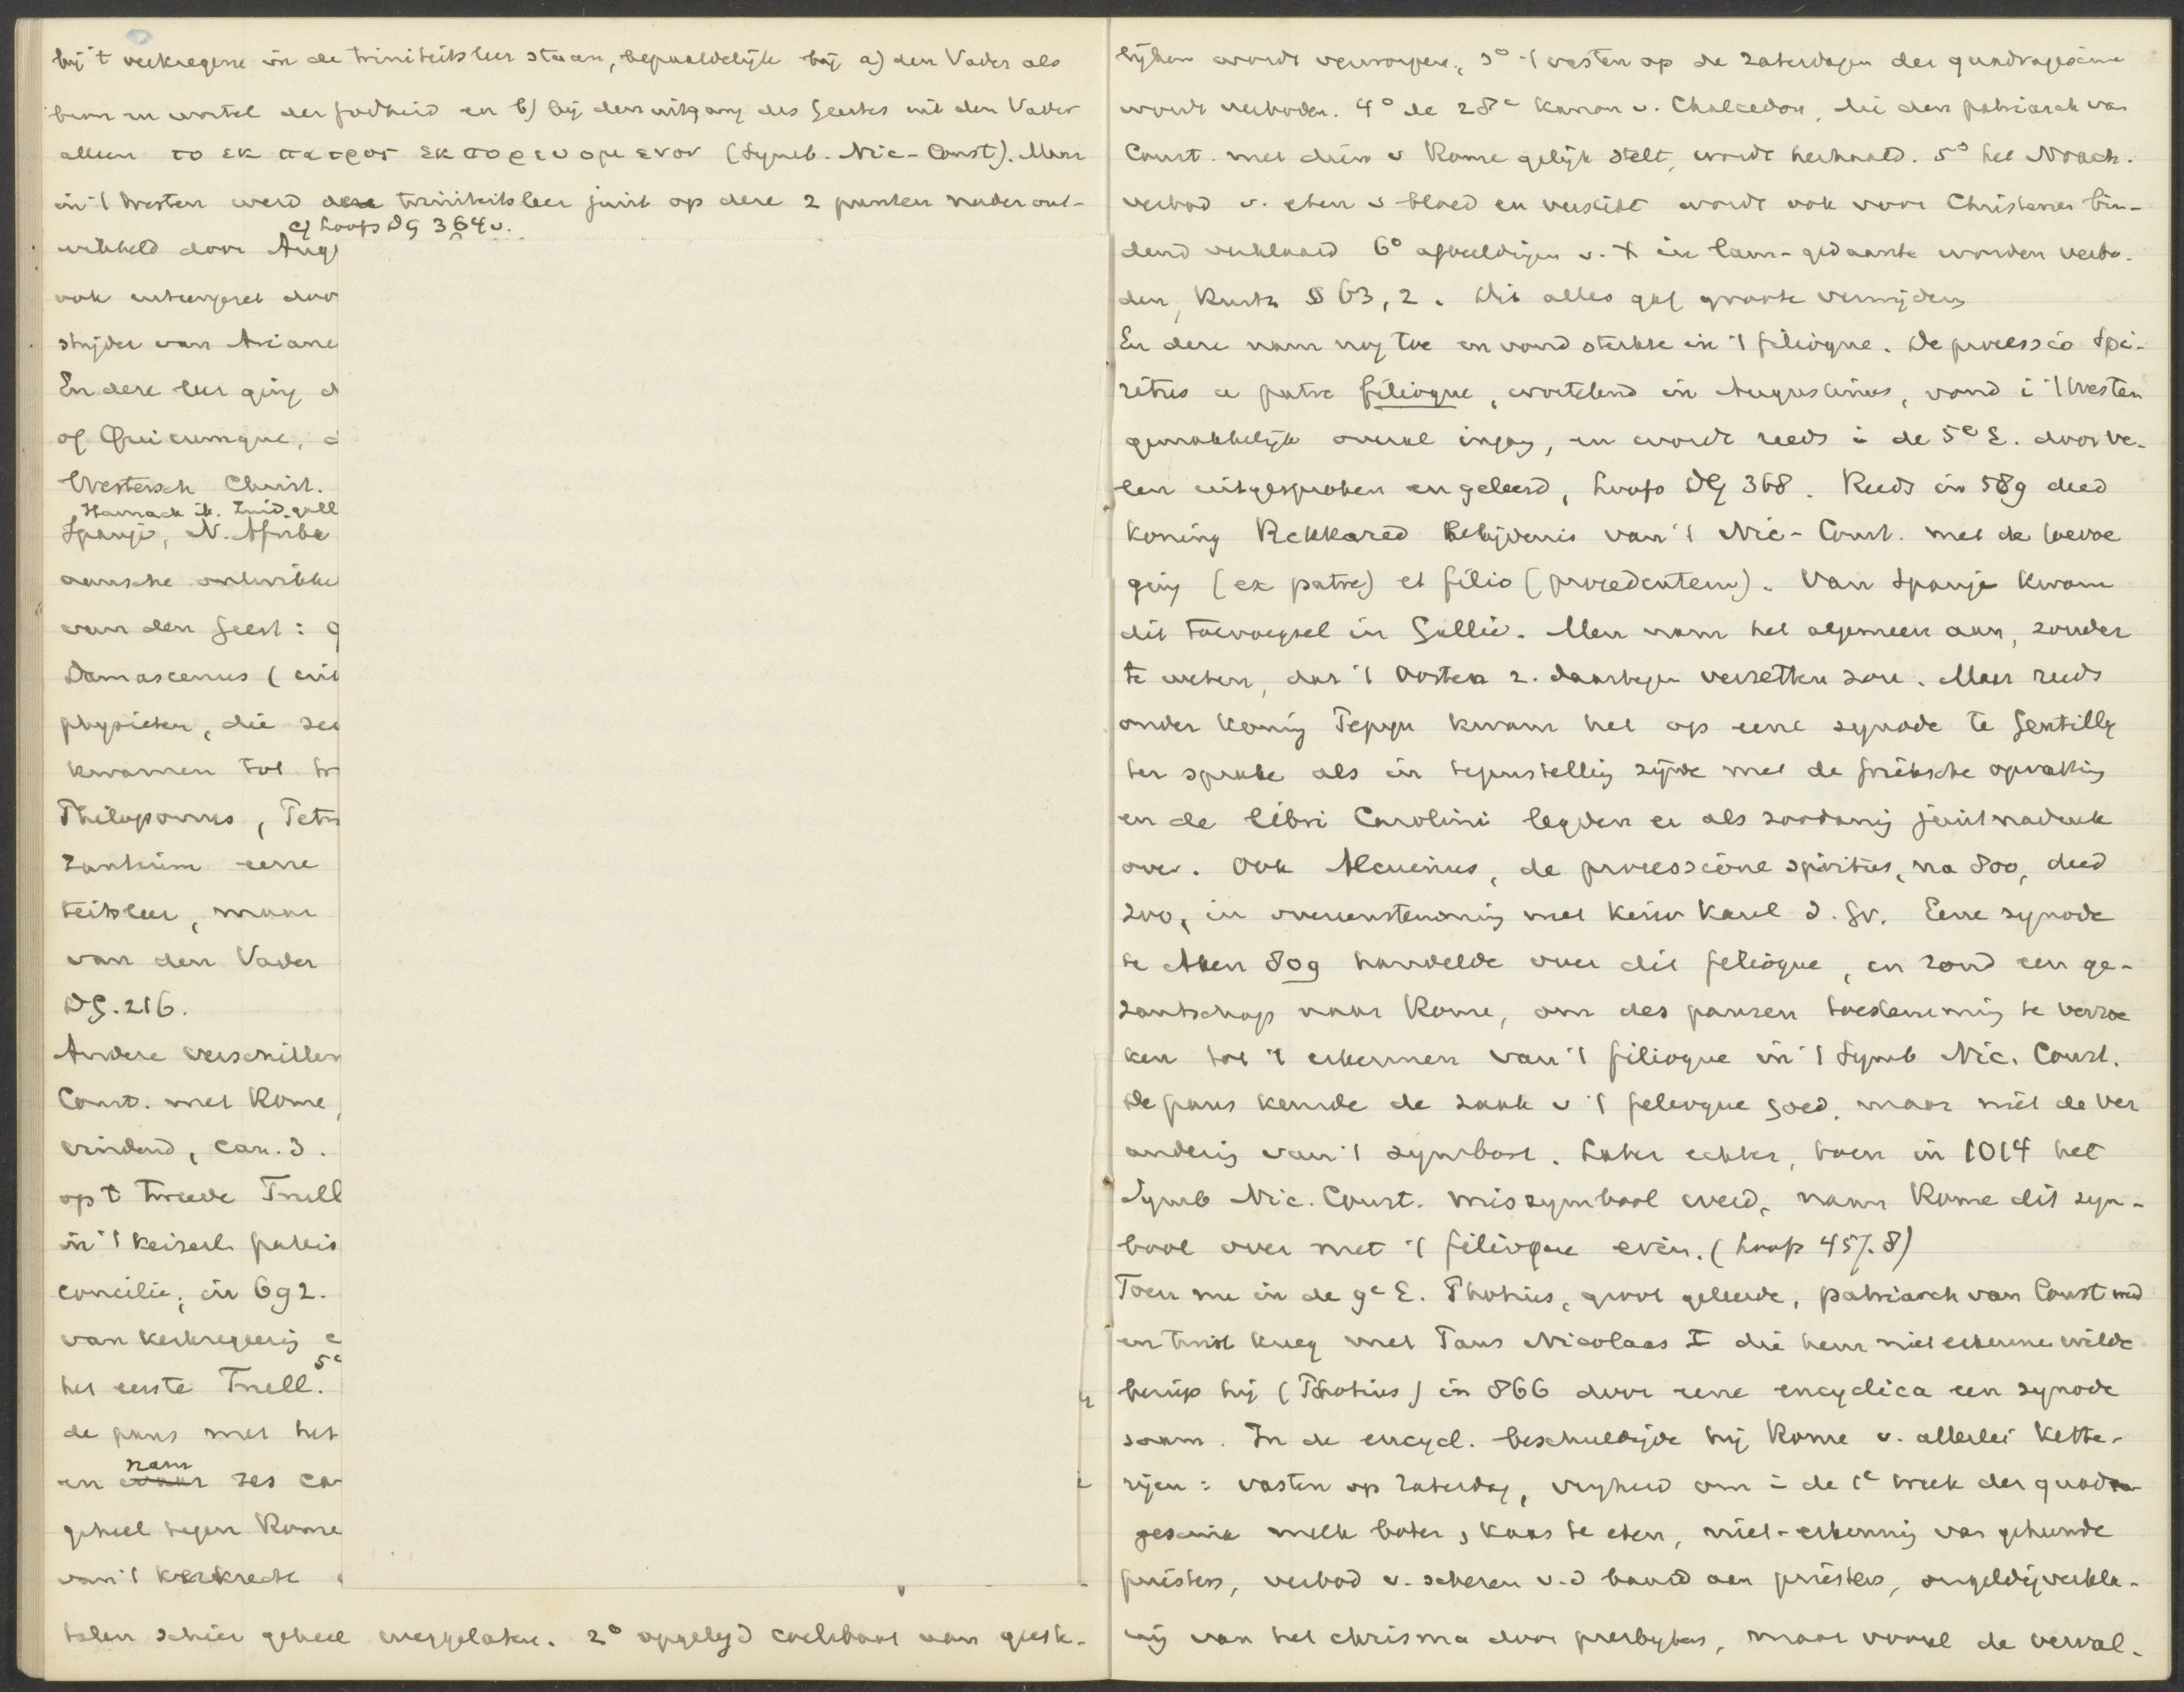 bij 't verkregene in de triniteitsleer staan, bepaaldelijk bij a) den Vader als
bron en wortel der godheid en b) bij den uitgang des Geestes uit den Vader
alleen το εκ πατρος εκπορευομενον (Symb. Nic-Const). Maar
in 't Westen werd deze triniteitsleer juist op deze 2 punten nader ont-
c) Loofs DG 364v.
wikkeld door Aug
ook
strijder van Ariane
En deze leer ging d
of Quicumque, d
Westersch Christ.
Harnack ib. Zuid-gall
Spanje, N. Afrika
aansche ontwikke
van den Geest: g
Damascenus (uit
physieten, die
kwamen tot tr
Philoponus, Petr
Zanchius eene
teitsleer, maar
van den Vader
DG. 216.
Andere verschillen
Const. met Rome,
vindend, can. 3.
op t tweede Trull
in 't keizerl. paleis
concilie, in 692.
van kerkregeering e
5e
het eerste Trull.
de paus met het
nam
en zes ca
geheel tegen Rome
van 't kerkrecht
talen schier geheel weggelaten. 2° opgelegd coelibaat van geest-
lijken wordt verworpen, 3° 't vasten op de Zaterdagen der quadragesima
wordt verboden. 4° de 28e kanon v. Chalcedon, die den patriarch van
Const. met dien v Rome gelijk stelt, wordt herhaald. 5° het Noach.
verbod v. eten v bloed en verstikt wordt ook voor Christenen bin-
dend verklaard 6° afbeeldingen v. X in lam-gedaante worden verbo-
den, Kurtz § 63, 2. Dit alles gaf groote verwijdering
En deze nam nog toe en vond sterkte in 't filioque. De processio Spi-
ritus a patre filioque, wortelend in Augustinus, vond i 't Westen
gemakkelijk overal ingang, en wordt reeds i de 5e E. door ve-
len uitgesproken en geleerd, Loofs DG 368. Reeds in 589 deed
koning Rekkared Belijdenis van 't Nic-Const. met de toevoe
ging (ex patre) et filio (procedentem). Van Spanje kwam
dit toevoegsel in Gallië. Men nam het algemeen aan, zonder
te weten, dat 't Oosten z. daartegen verzetten zou. Maar reeds
onder koning Pepyn kwam het op eene synode te Gentilly
ter sprake als in tegenstelling zijnde met de Grieksche opvatting
en de libri Carolini legden er als zoodanig juist nadruk
over. Ook Alcuinus, de processione spiritus, na 800, deed
zoo, in overeenstemming met keizer Karel d. Gr. Eene synode
te Aken 809 handelde over dit filioque, en zond een ge-
zantschap naar Rome, om des pausen toestemming te verzoe
ken tot 't erkennen van 't filioque in 't Symb Nic. Const.
De paus keurde de zaak v 't filioque goed, maar niet de ver
andering van 't symbool. Later echter, toen in 1014 het
Symb Nic. Const. missymbool werd, nam Rome dit sym-
bool over met 't filioque erin. (Loofs 457.8)
Toen nu in de 9e E. Photius, groot geleerde, patriarch van Const werd
en twist kreeg met Paus Nicolaas I die hem niet erkennen wilde
beriep hij (Photius) in 866 door eene encyclica een synode
saam. In de encycl. beschuldigde hij Rome v. allerlei kette-
rijen: vasten op Zaterdag, vrijheid om i de 1e week der quadra-
gesima melk boter, kaas te eten, niet-erkenning van gehuwde
priesters, verbod v. scheren v. d baard aan priesters, ongeldigverkla-
ring van het chrisma door presbyters, maar vooral de verval-